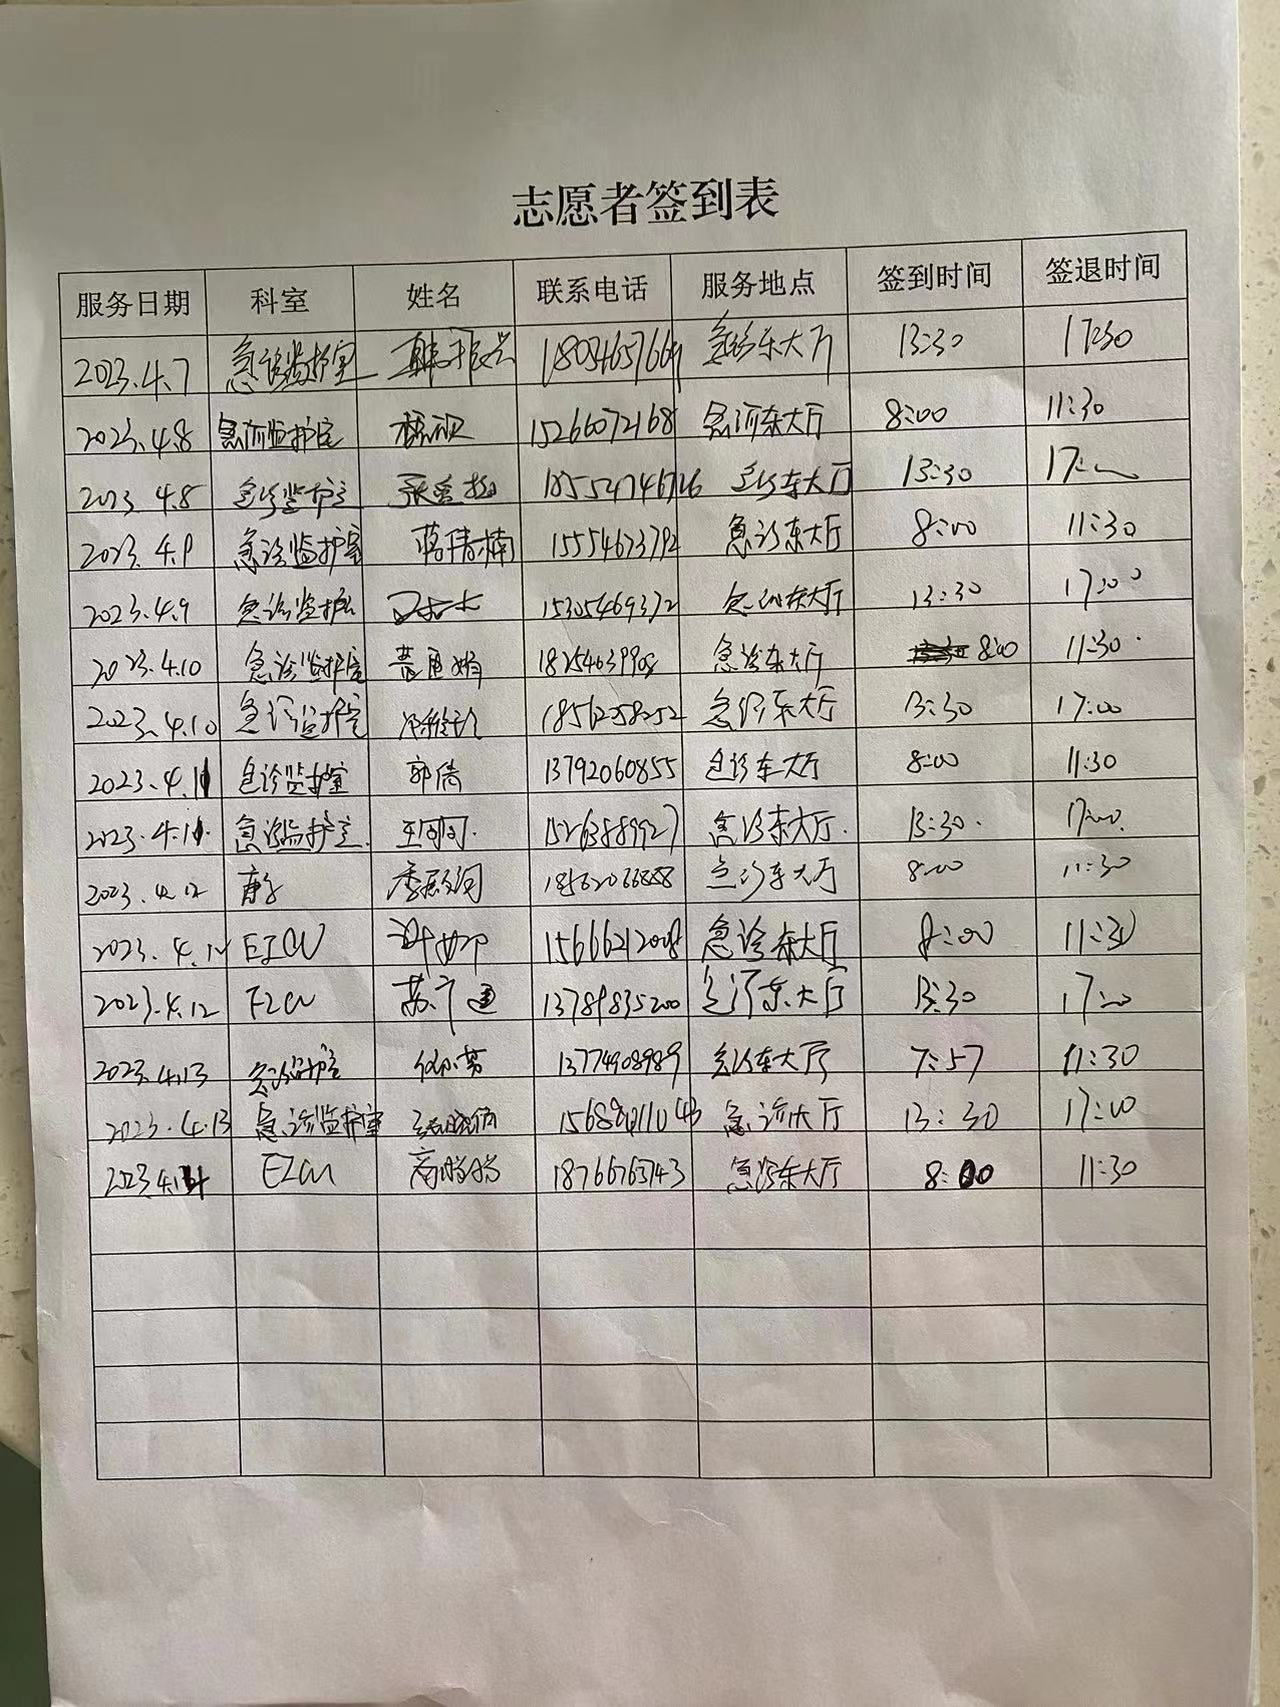 志愿者签到表
服务日期 科室 姓名 联系电话 服务地点 签到时间 签退时间
2023.4.7 急诊监护室 急诊东大厅 13:30 17:30
2023.4.8 急诊监护室 15266072168 急诊东大厅 8:00 11:30
2023.4.8 急诊监护室 急诊东大厅 13:30
2023.4.9 急诊监护室 蒋倩楠 15554673792 急诊东大厅 8:00 11:30
2023.4.9 急诊监护室 15305469372 急诊东大厅 13:30 17:00
2023.4.10 急诊监护室 18254639908 急诊东大厅 8:00 11:30
2023.4.10 急诊监护室 18562358252 急诊东大厅 13:30 17:00
2023.4.11 急诊监护室 郭倩 13792060855 急诊东大厅 8:00 11:30
2023.4.11 急诊监护室 王珂珂 15263889927 急诊东大厅 13:30 17:00
2023.4.12 18562066888 急诊东大厅 8:00 11:30
2023.4.12 EICU 15666212008 急诊东大厅 8:00 11:30
2023.4.12 EICU 13789835200 急诊东大厅 13:30 17:00
2023.4.13 急诊监护室 13774908989 急诊东大厅 7:57 11:30
2023.4.13 急诊监护室 急诊大厅 13:30 17:00
2023.4.14 EICU 18766765743 急诊东大厅 8:00 11:30